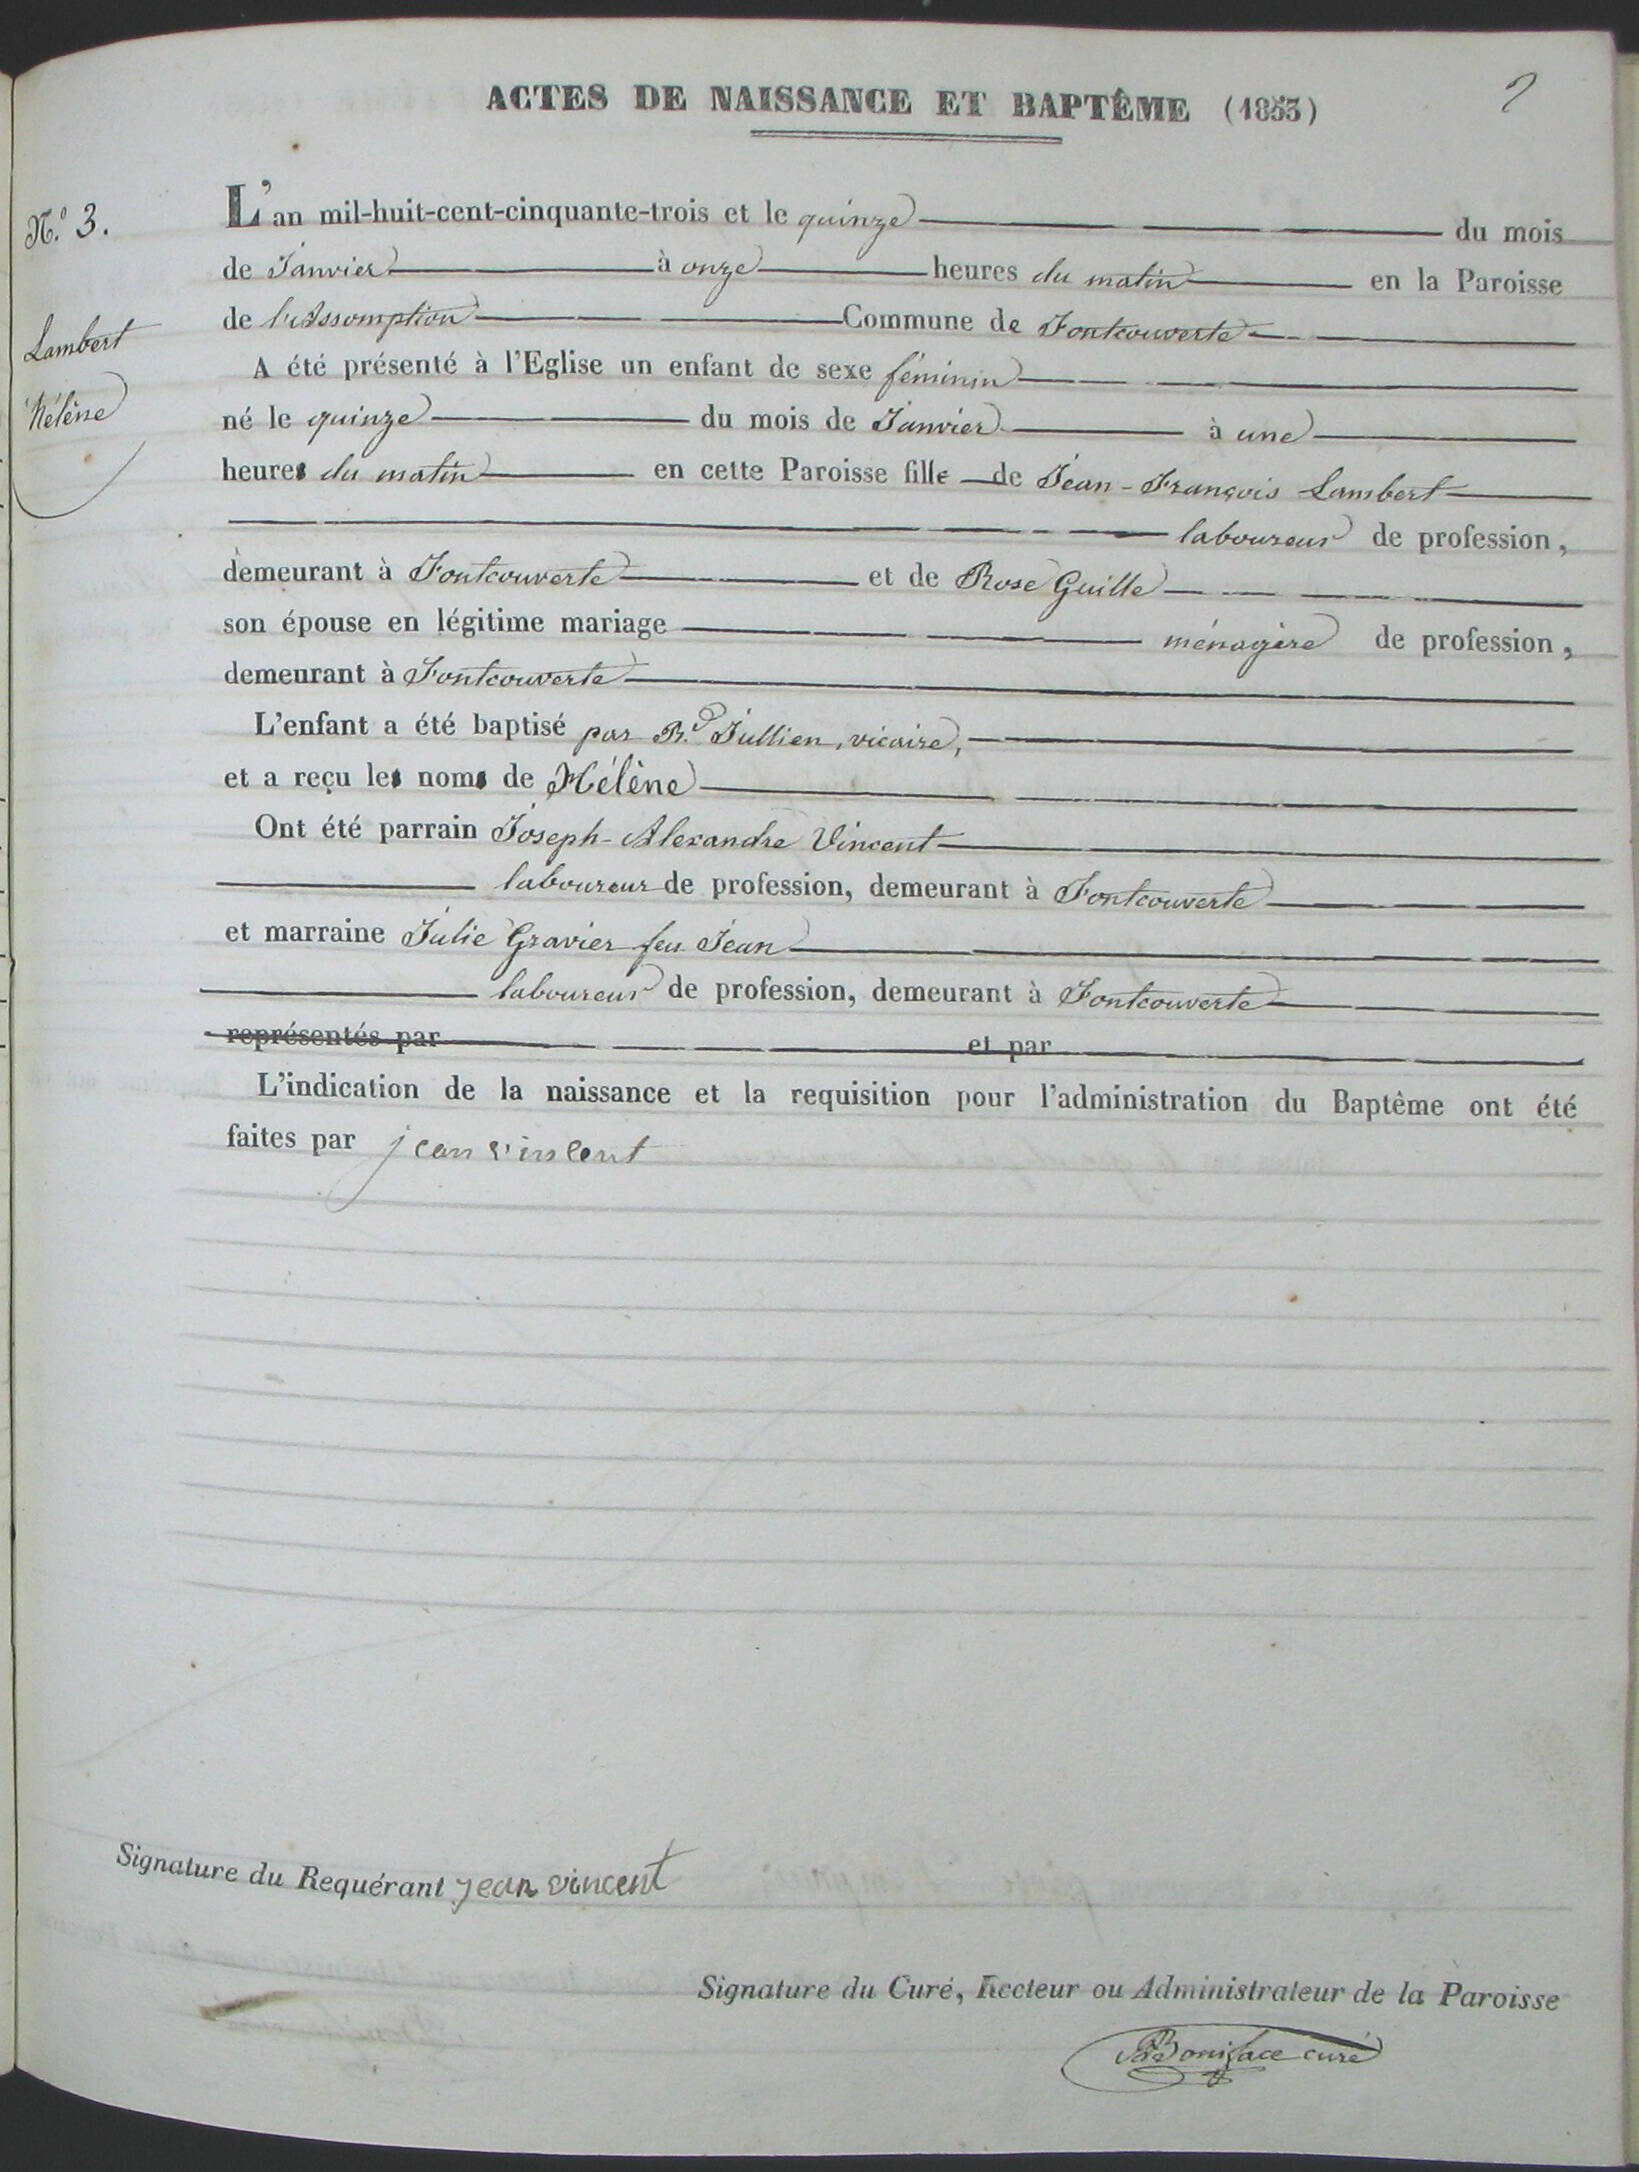 ACTES DE NAISSANCE ET BAPTÊME (1853)
2
N.º 3.
Lambert
Hélène
L'an mil-huit-cent-cinquante-trois et le quinze du mois
de Janvier à onze heures du matin en la Paroisse
de l'Assomption Commune de Fontcouverte
A été présenté à l'Eglise un enfant de sexe féminin
né le quinze du mois de Janvier à une
heures du matin en cette Paroisse fille de Jean-François Lambert
laboureur de profession,
demeurant à Fontcouverte et de Rose Guille
son épouse en légitime mariage ménagère de profession,
demeurant à Fontcouverte
L'enfant a été baptisé par R.d Jullien, vicaire,
et a reçu les noms de Hélène
Ont été parrain Joseph-Alexandre Vincent
laboureur de profession, demeurant à Fontcouverte
et marraine Julie Gravier feu Jean
laboureur de profession, demeurant à Fontcouverte
représentés par et par
L'indication de la naissance et la requisition pour l'administration du Baptême ont été
faites par jean vincent
Signature du Requérant jean vincent
Signature du Curé, Recteur ou Administrateur de la Paroisse
Boniface curé